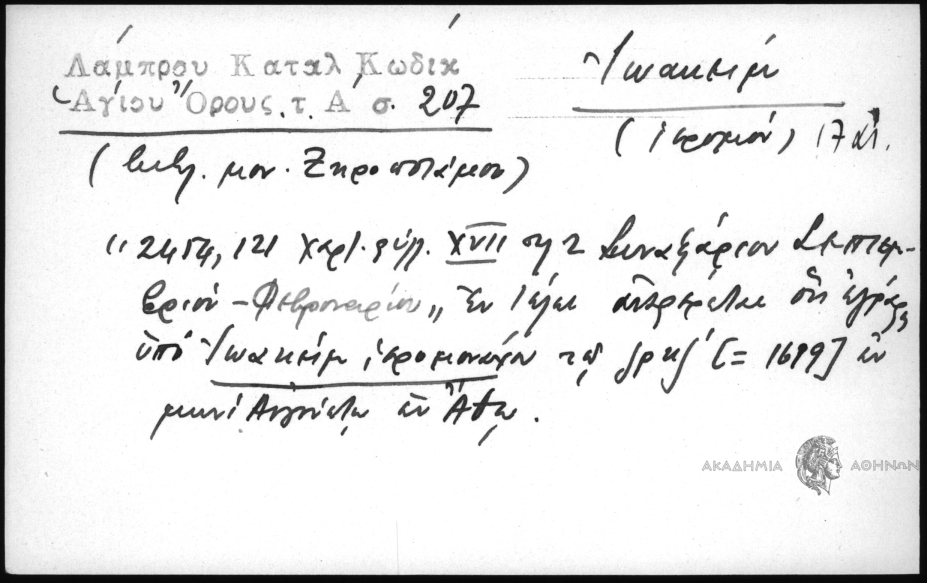 Λάμπρου Καταλ Κωδίκ
Ἁγίου Ὄρους. τ. Α σ. 207
Ἰωακείμ
(ἱερομόν) 17 αἰ.
(βιβλ. μον. Ξηροποτάμου)
"2454, 121 χαρτ. φύλλ. XVII Συναξάριον Σεπτεμ-
βρίου - Φεβρουαρίου,, Ἐν τέλει ὅτι ἐγράφη
ὑπό Ἰωακείμ ἱερομονάχου τῷ ζρκζ [= 1619] ἐν
μηνί Αὐγούστῳ ἐν Ἄθῳ.
ΑΚΑΔΗΜΙΑ ΑΘΗΝΩΝ